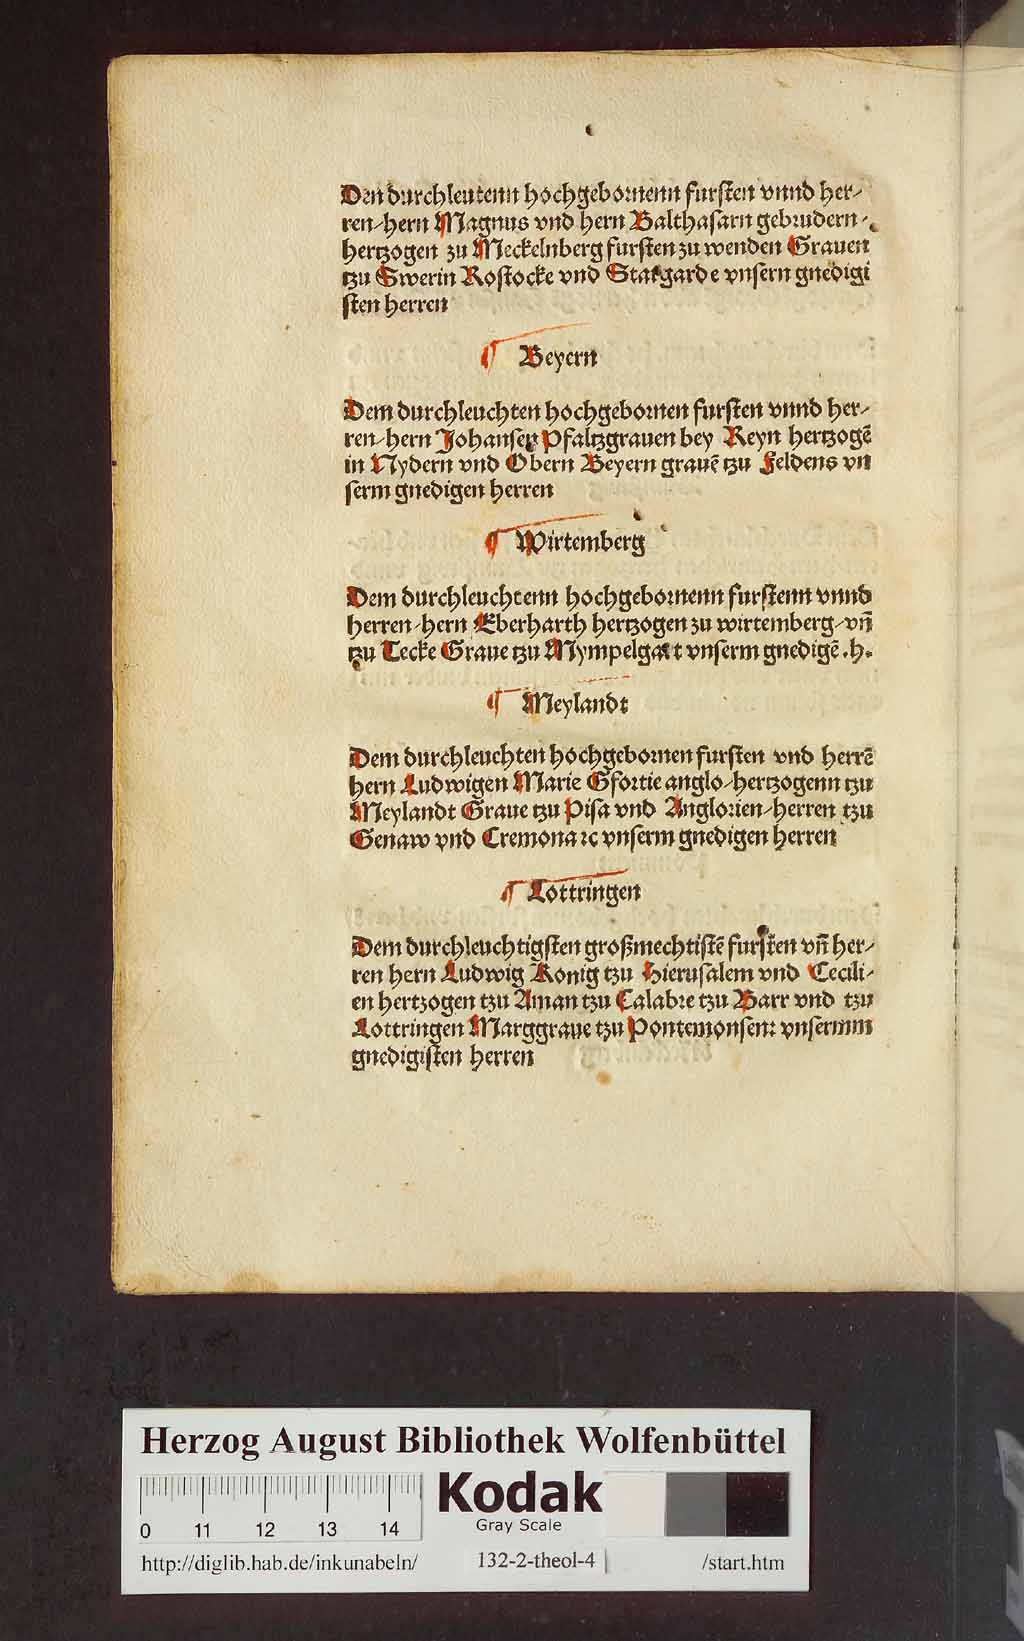 Den durchleutenn hochgebornenn fursten vnnd her/
ren/hern Magnus vnd hern Balthasarn gebrudern/.
hertzogen zu Meckelnberg fursten zu wenden Grauen
tzu Swerin Rostocke vnd Stargarde vnsern gnedigi
sten herren
¶ Beyern
Dem durchleuchten hochgebornen fursten vnnd her/
ren/hern Johansen Pfaltzgrauen bey Reyn hertzogē
in Nydern vnd Obern Beyern grauē tzu Feldens vn
serm gnedigen herren
¶ Wirtemberg
Dem durchleuchtenn hochgebornenn furstenn vnnd
herren/hern Eberharth hertzogen zu wirtemberg/vn̄
tzu Tecke Graue tzu Mympelgart vnserm gnedigē .h.
¶ Meylandt
Dem durchleuchten hochgebornen fursten vnd herrē
hern Ludwigen Marie Gfortie anglo/hertzogenn tzu
Meylandt Graue tzu Pisa vnd Anglorien/herren tzu
Genaw vnd Cremona ⁊c vnserm gnedigen herren
¶ Lottringen
Dem durchleuchtigsten großmechtistē fursten vn̄ her/
ren hern Ludwig Konig tzu Hierusalem vnd Cecili/
en hertzogen tzu Aman tzu Calabre tzu Barr vnd tzu
Lottringen Marggraue tzu Pontemonsenn vnsermm
gnedigisten herren
Herzog August Bibliothek Wolfenbüttel
0 11 12 13 14
Kodak
Gray Scale
http://diglib.hab.de/inkunabeln/ 132-2-theol-4 /start.htm